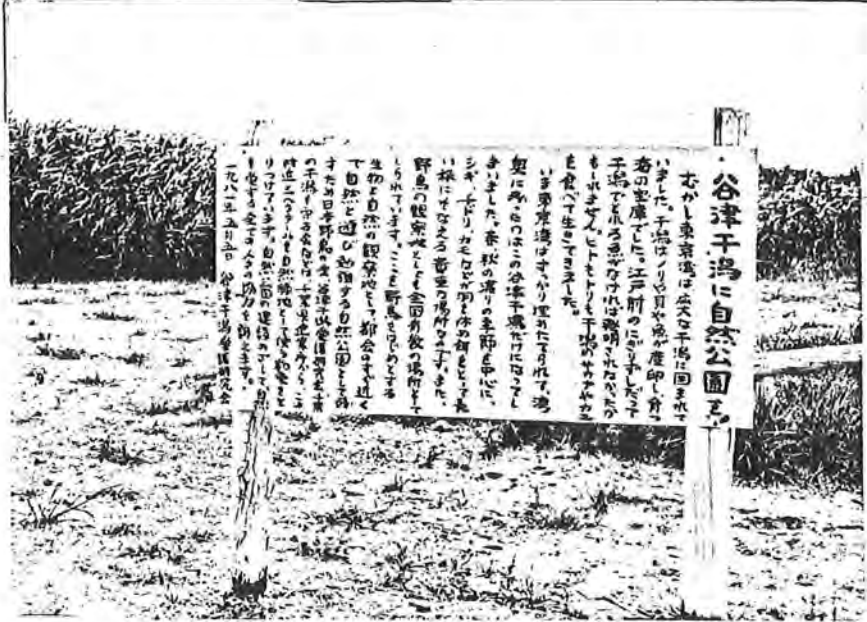 谷津干潟に自然公園を。
むかし東京湾は広大な干潟に囲まれて
いました。干潟はノリや貝や魚が産卵し、育つ
海の宝庫でした。江戸前のにぎりずしだって
干潟でとれる魚がなければ発明されなかったか
もしれません。ヒトもトリも干潟のサカナやカニ
を食べて生きてきました。
いま東京湾はすっかり埋めたてられて、湾
奥に残ったのはこの谷津干潟だけになってし
まいました。春、秋の渡りの季節を中心に、
シギ、チドリ、カモなどが羽を休め餌をとって長
い旅にそなえる貴重な場所なのです。また、
野鳥の観察地としても全国有数の場所として
しられています。ここを野鳥をはじめとする
生物と自然の観察地として、都会のすぐ近く
で自然と遊び勉強する自然公園として残
すため日本野鳥の会、谷津干潟愛護研究会、千葉
の干潟を守る会などは、千葉県
付近三ヘクタールを自然観察地として
りつけています。自然公園の建設をめざして自然
を愛する全ての人々の協力を訴えます。
一九八一年五月五日 谷津干潟愛護研究会